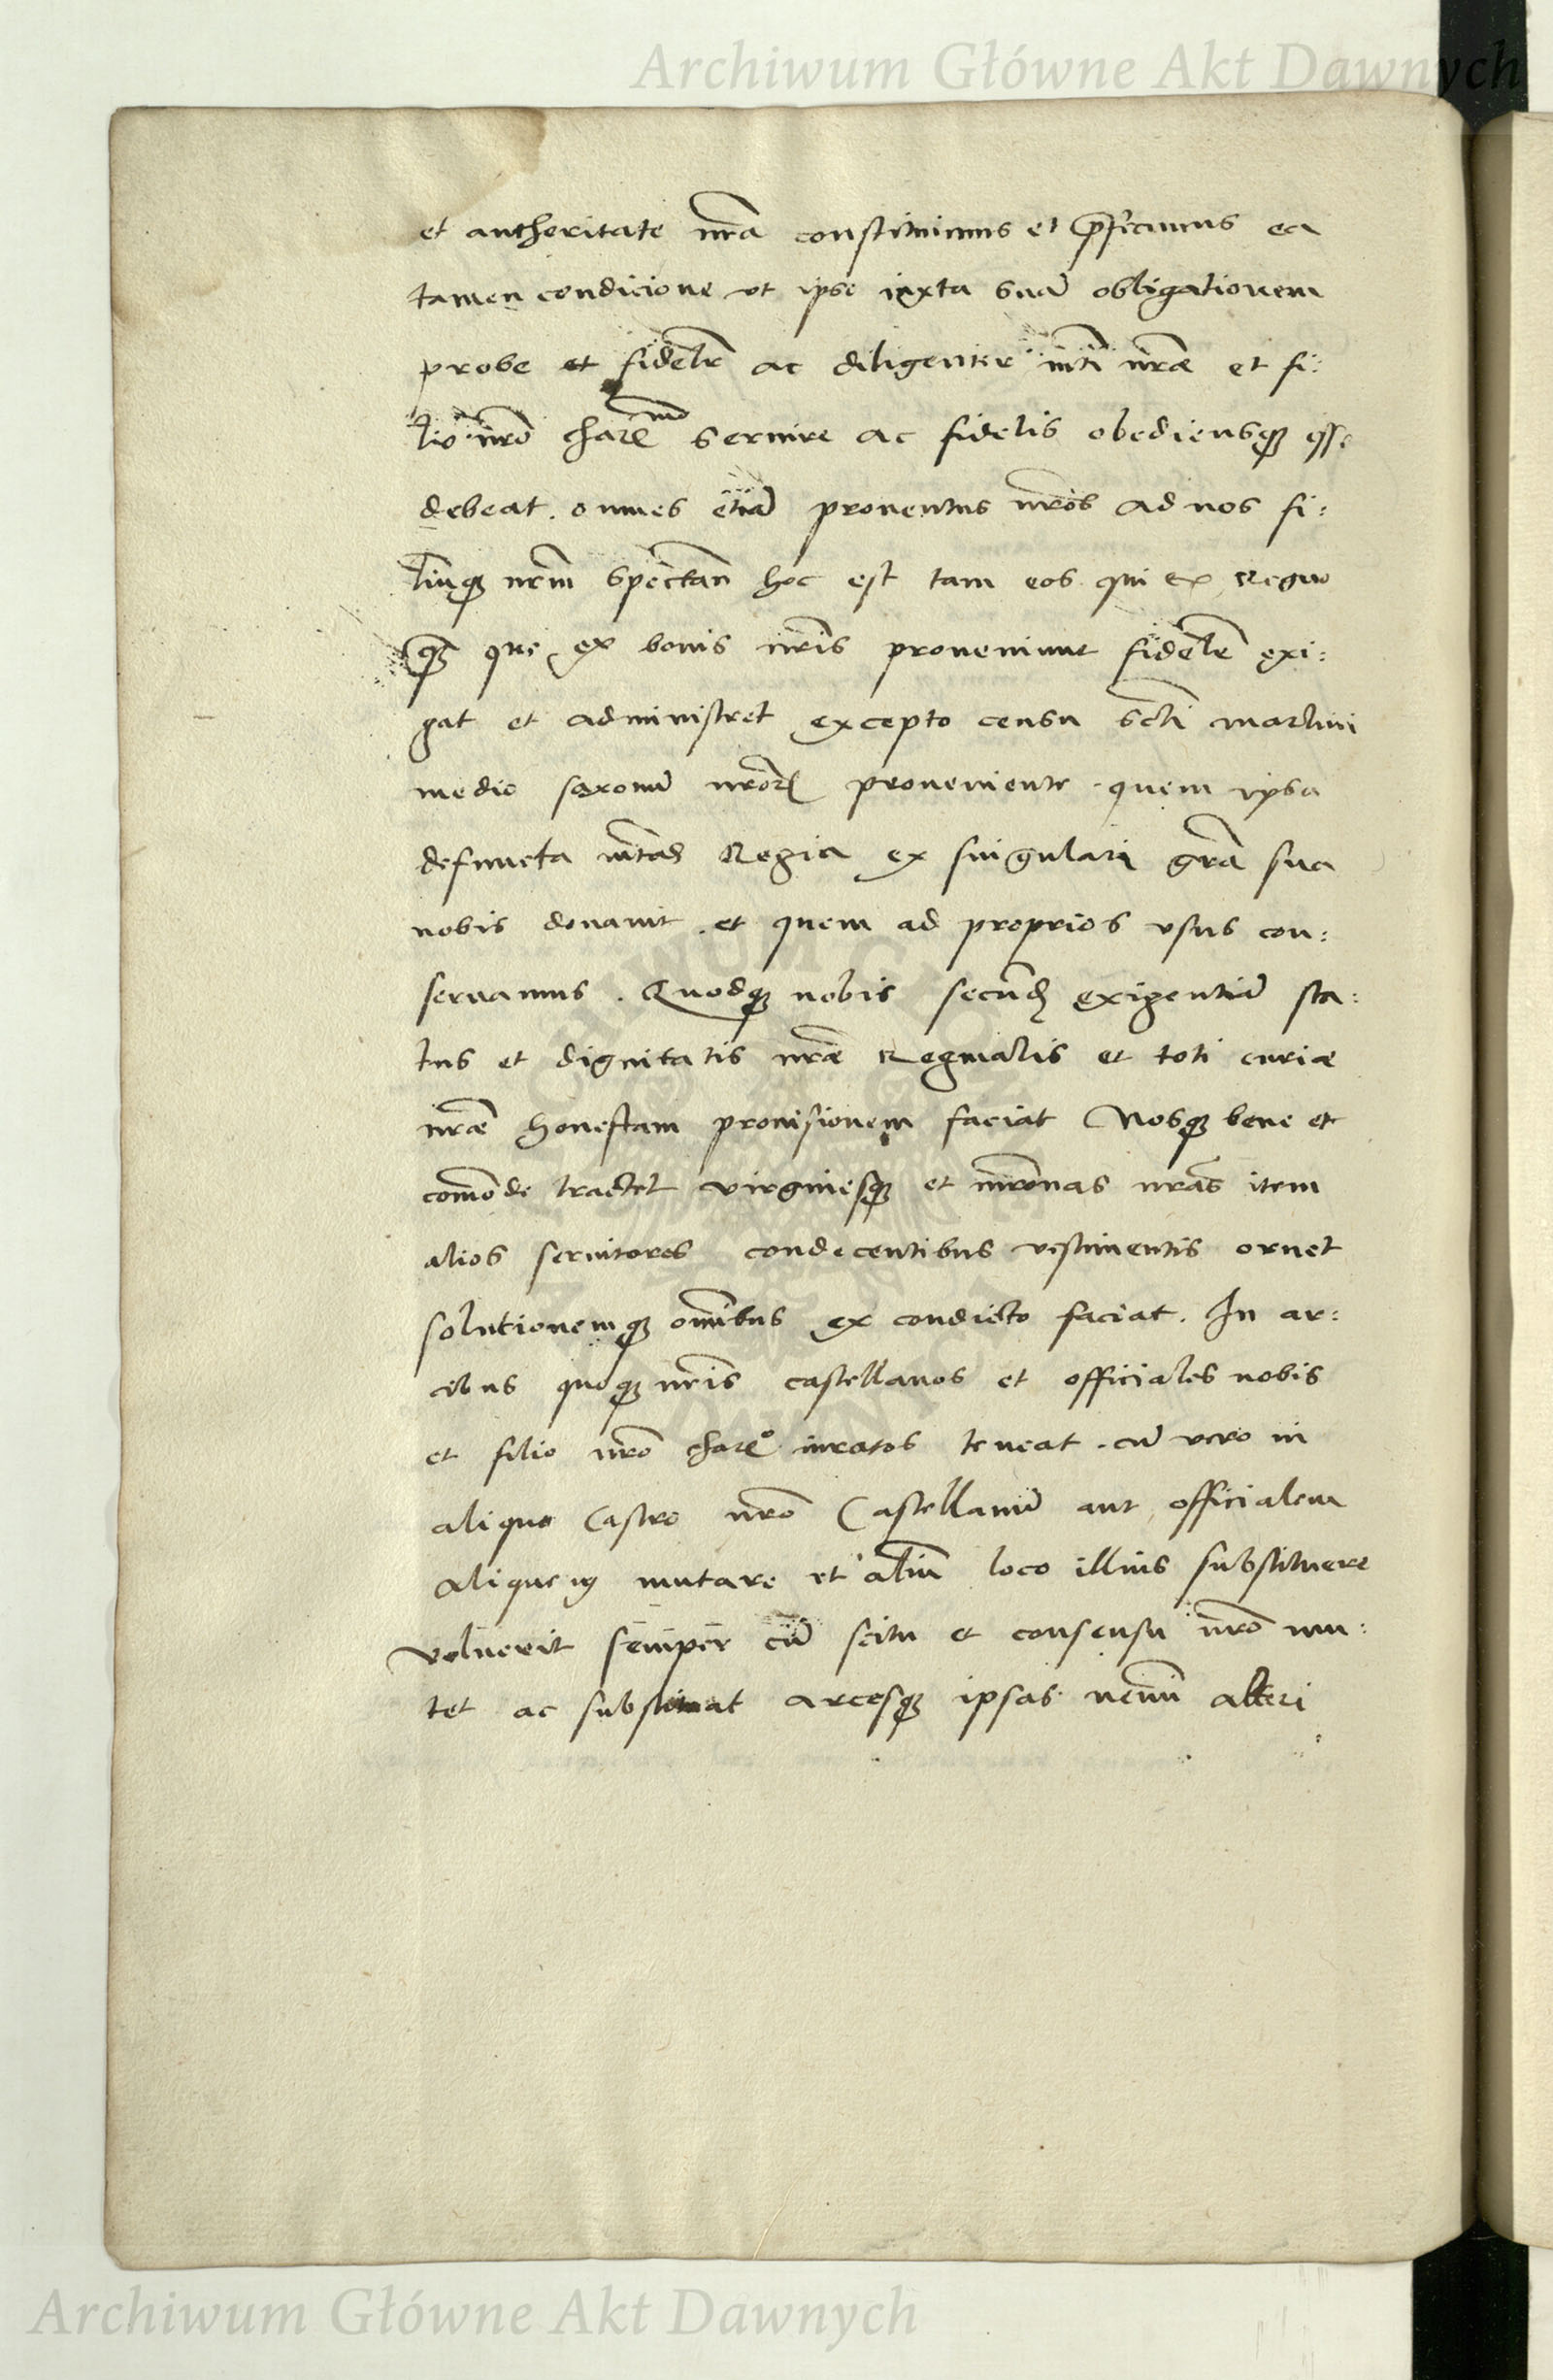 Archiwum Główne Akt Dawnych
et autheritate nrã constituimus et p̃ficimus ea
tamen condicione vt ipse iuxta suã obligationem
probe et fidelr̃ ac diligenter mtĩ nrãe et fi:
lio nrõ charẽmo seruire ac fidelis obediensq3 esse
debeat. omnes etiã prouentus nrõs ad nos fi:
liũq3 nrm̃ spectañ hoc est tam eos qui ex Regno
q3 qui ex bonis nrĩs proueniunt fidelr̃ exi:
gat et administret excepto censu sctĩ martini
medio saxonũ nrõrꝝ proueniente. quem ipsa
defuncta mtãs Regia ex singulari grã sua
nobis donauit. et quem ad proprios vsus con:
seruamus. Quodq3 nobis secũdꝫ exigentiã sta:
tus et dignitatis nrãe Reginalis et toti curiæ
nrãe honestam prouisionem faciat Nosq3 bene et
com̃ode tractet virginesq3 et mrõnas nrãs item
alios seruitores condecentibus vestimentis ornet
solutionemq3 om̃ibus ex condicto faciat. In ar:
cibus quoq3 nrĩs castellanos et officiales nobis
et filio nrõ charẽo iuratos teneat. cũ vero in
aliquo Castro nrõ Castellanũ aut officialem
aliquem mutare et aliũ loco illius substituere
voluerit semper cũ scitu et consensu nrõ mu:
tet ac substituat arcesq3 ipsas nemĩ alteri
Archiwum Główne Akt Dawnych